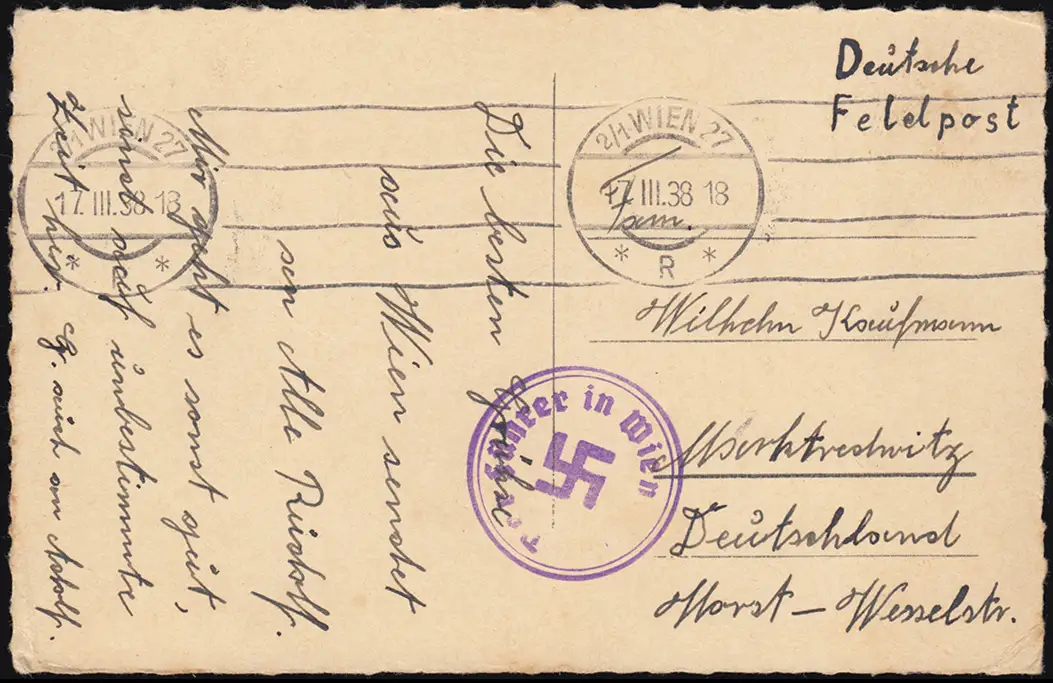 Deutsche
Feldpost
2/1 WIEN 27
17. III. 38 18
R
2/1 WIEN 27
17. III. 38 18
Fam.
Wilhelm Kaufmann
Marktredwitz
Deutschland
Horst-Wesselstr.
Der Führer in Wien
Die besten Grüße
aus Wien sendet
an Alle Rudolf.
Mir geht es sonst gut,
sonst auf unbestimmte
Zeit hir. auch an Adolf.